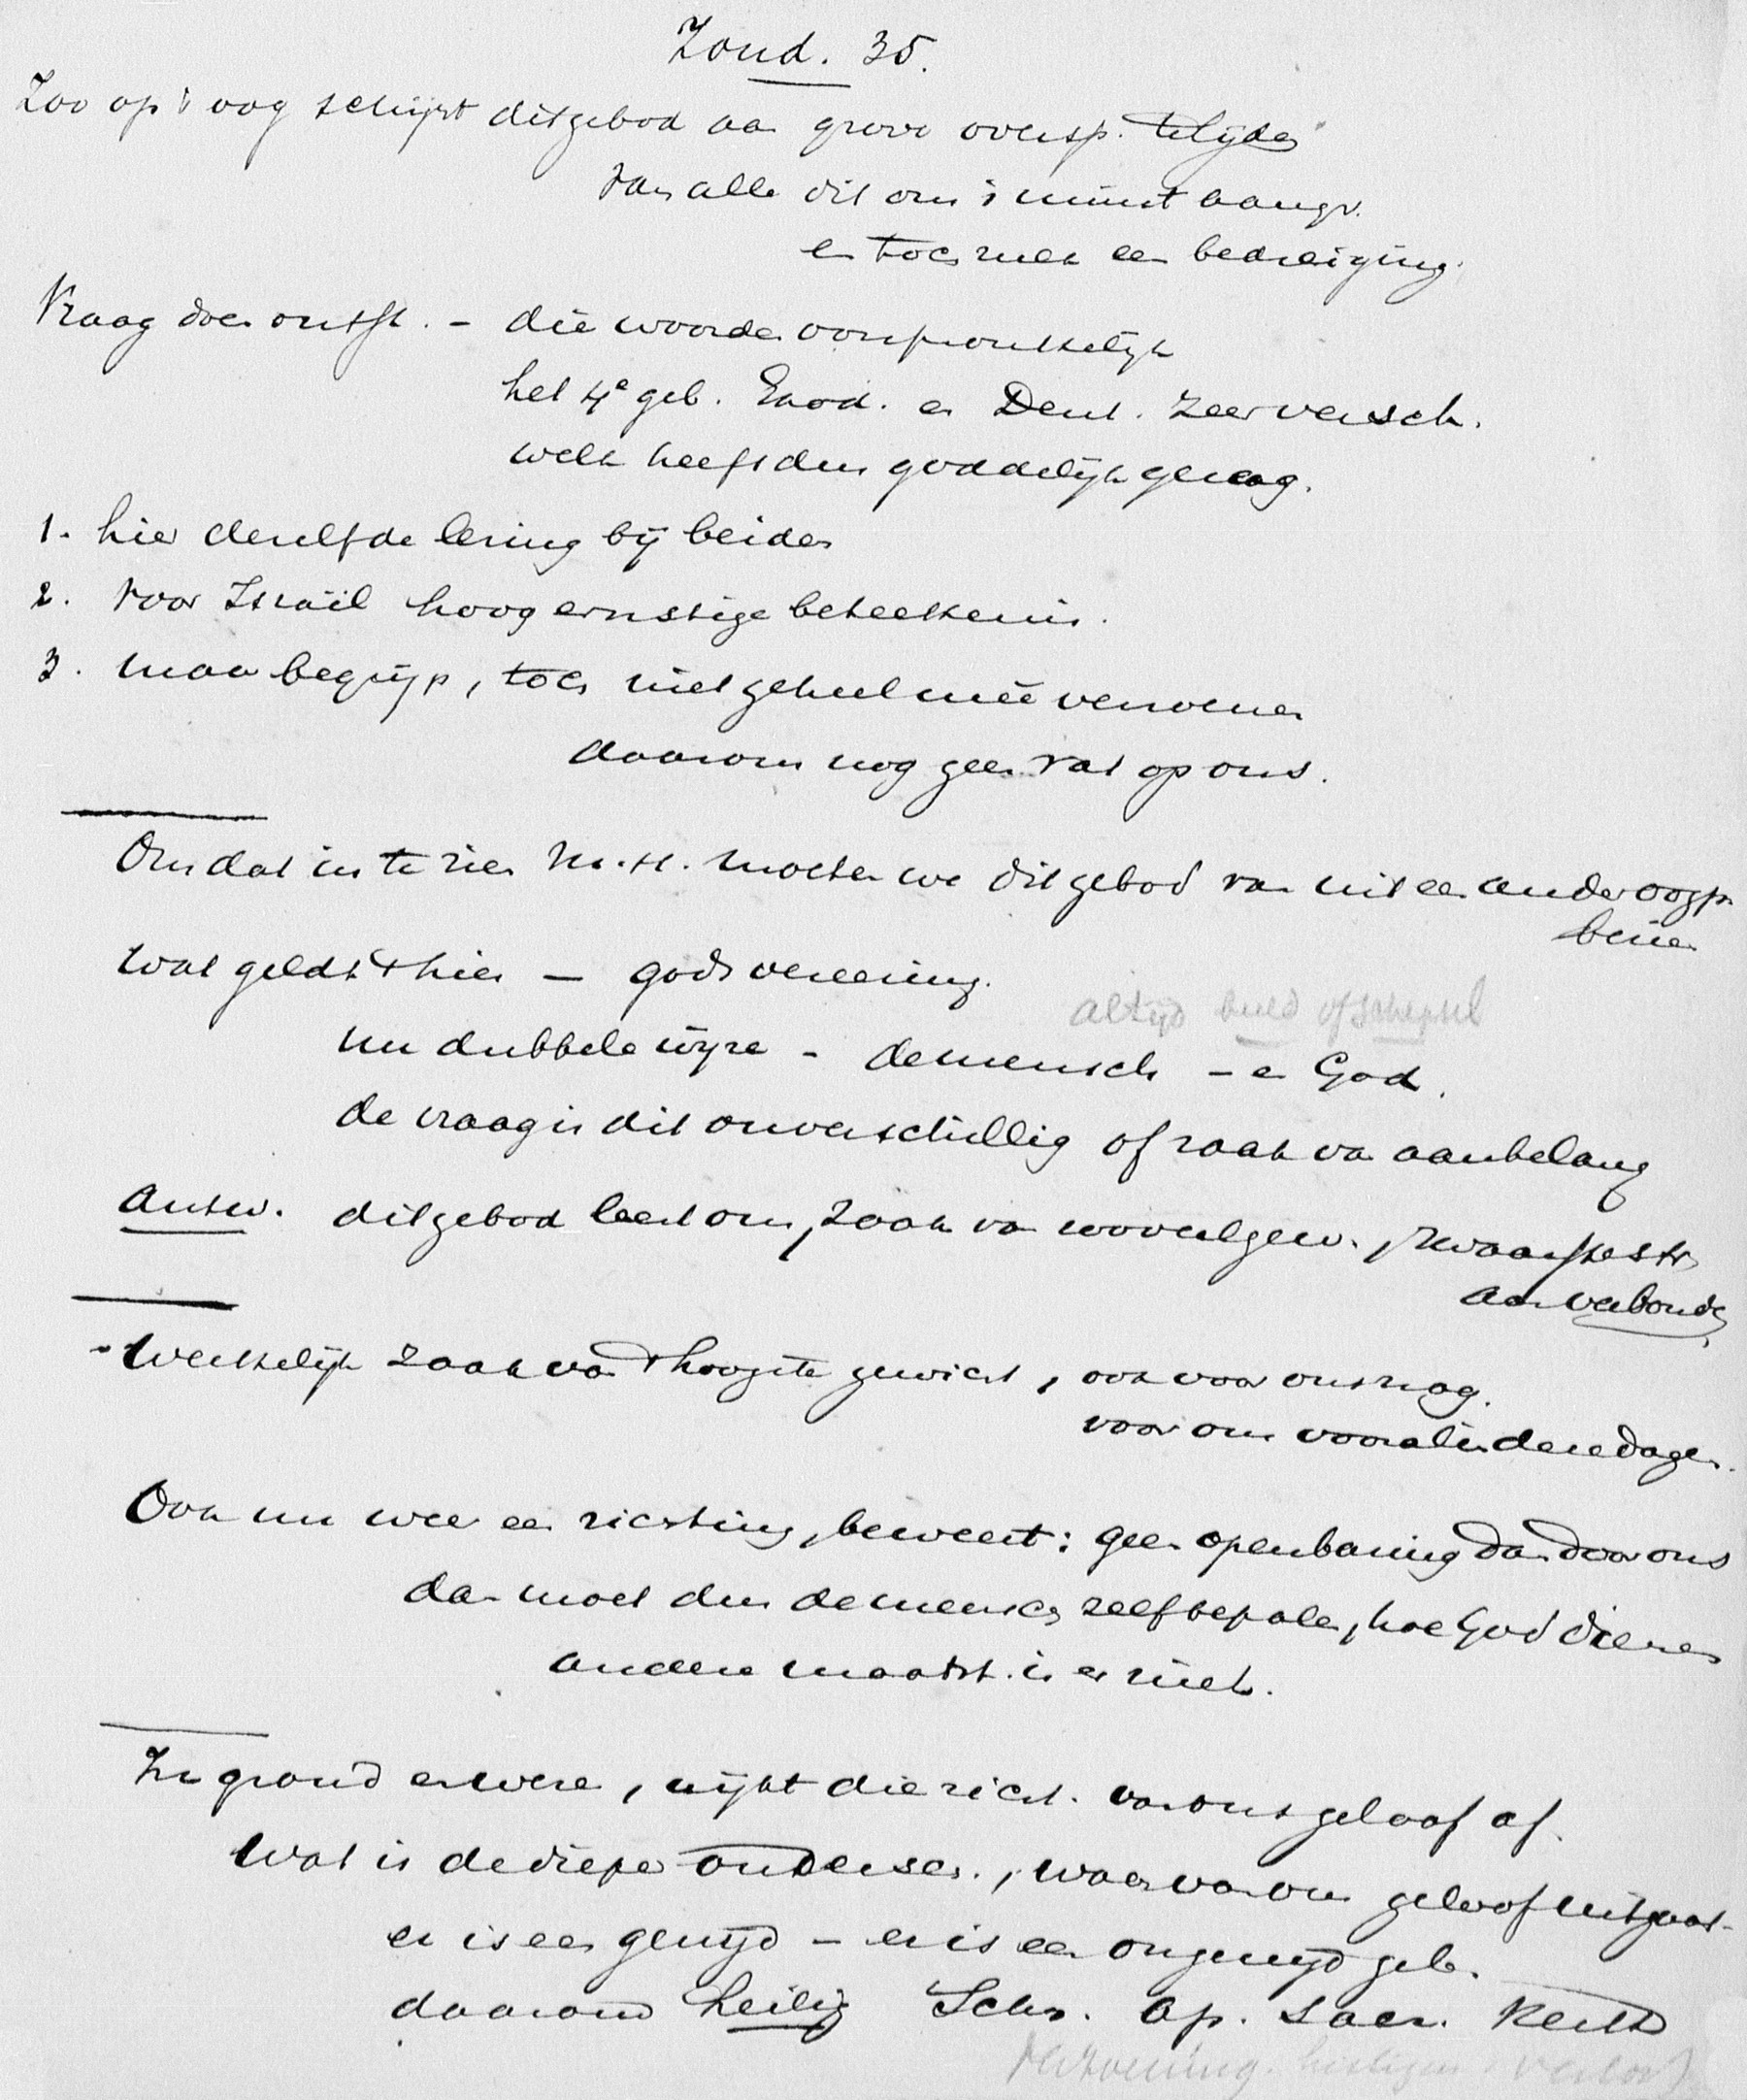 Zond. 35.
Zoo op 't oog schijnt dit gebod aan grove overtr. te lijden
van alle dit ons 't minst aangr.
en toch met een bedreiging.
Vraag doen ontst. - die woorden oorspronkelijk
het 4e geb. Exod. en Deut. zeer versch.
welk heeft dus goddelijk gezag.
1. hier dezelfde lezing bij beiden
2. voor Israël hoog ernstige beteekenis.
3. maar begrijp, toch niet geheel meê verzoenen
daarom nog geen vat op ons.
Om dat in te zien M.H. moeten we dit gebod van uit een ander oogp.
bezien
Wat geldt 't hier - godsvereering.
altijd beeld of schepsel
nu dubbele wijze - de mensch - en God.
de vraag is dit onverschillig of zaak van aanbelang
Antw. dit gebod leert ons, zaak van zooveel gew., zwaarste str.
aan verbonden
- Werkelijk zaak van 't hoogste gewicht, ook voor ons nog.
voor ons vooral in deze dagen.
Ook nu weer een richting, beweert: geen openbaring dan door ons
dan moet dus de mensch zelf bepalen, hoe God dienen
andere maatst. is er niet.
In grond en wezen, wijkt die richt. van ons geloof af.
Wat is de diepe ondersch., waarvan ons geloof uitgaat
er is een gewijd - er is een ongewijd geb.
daarom heilig Schr. Ap. Sacr. Kerk